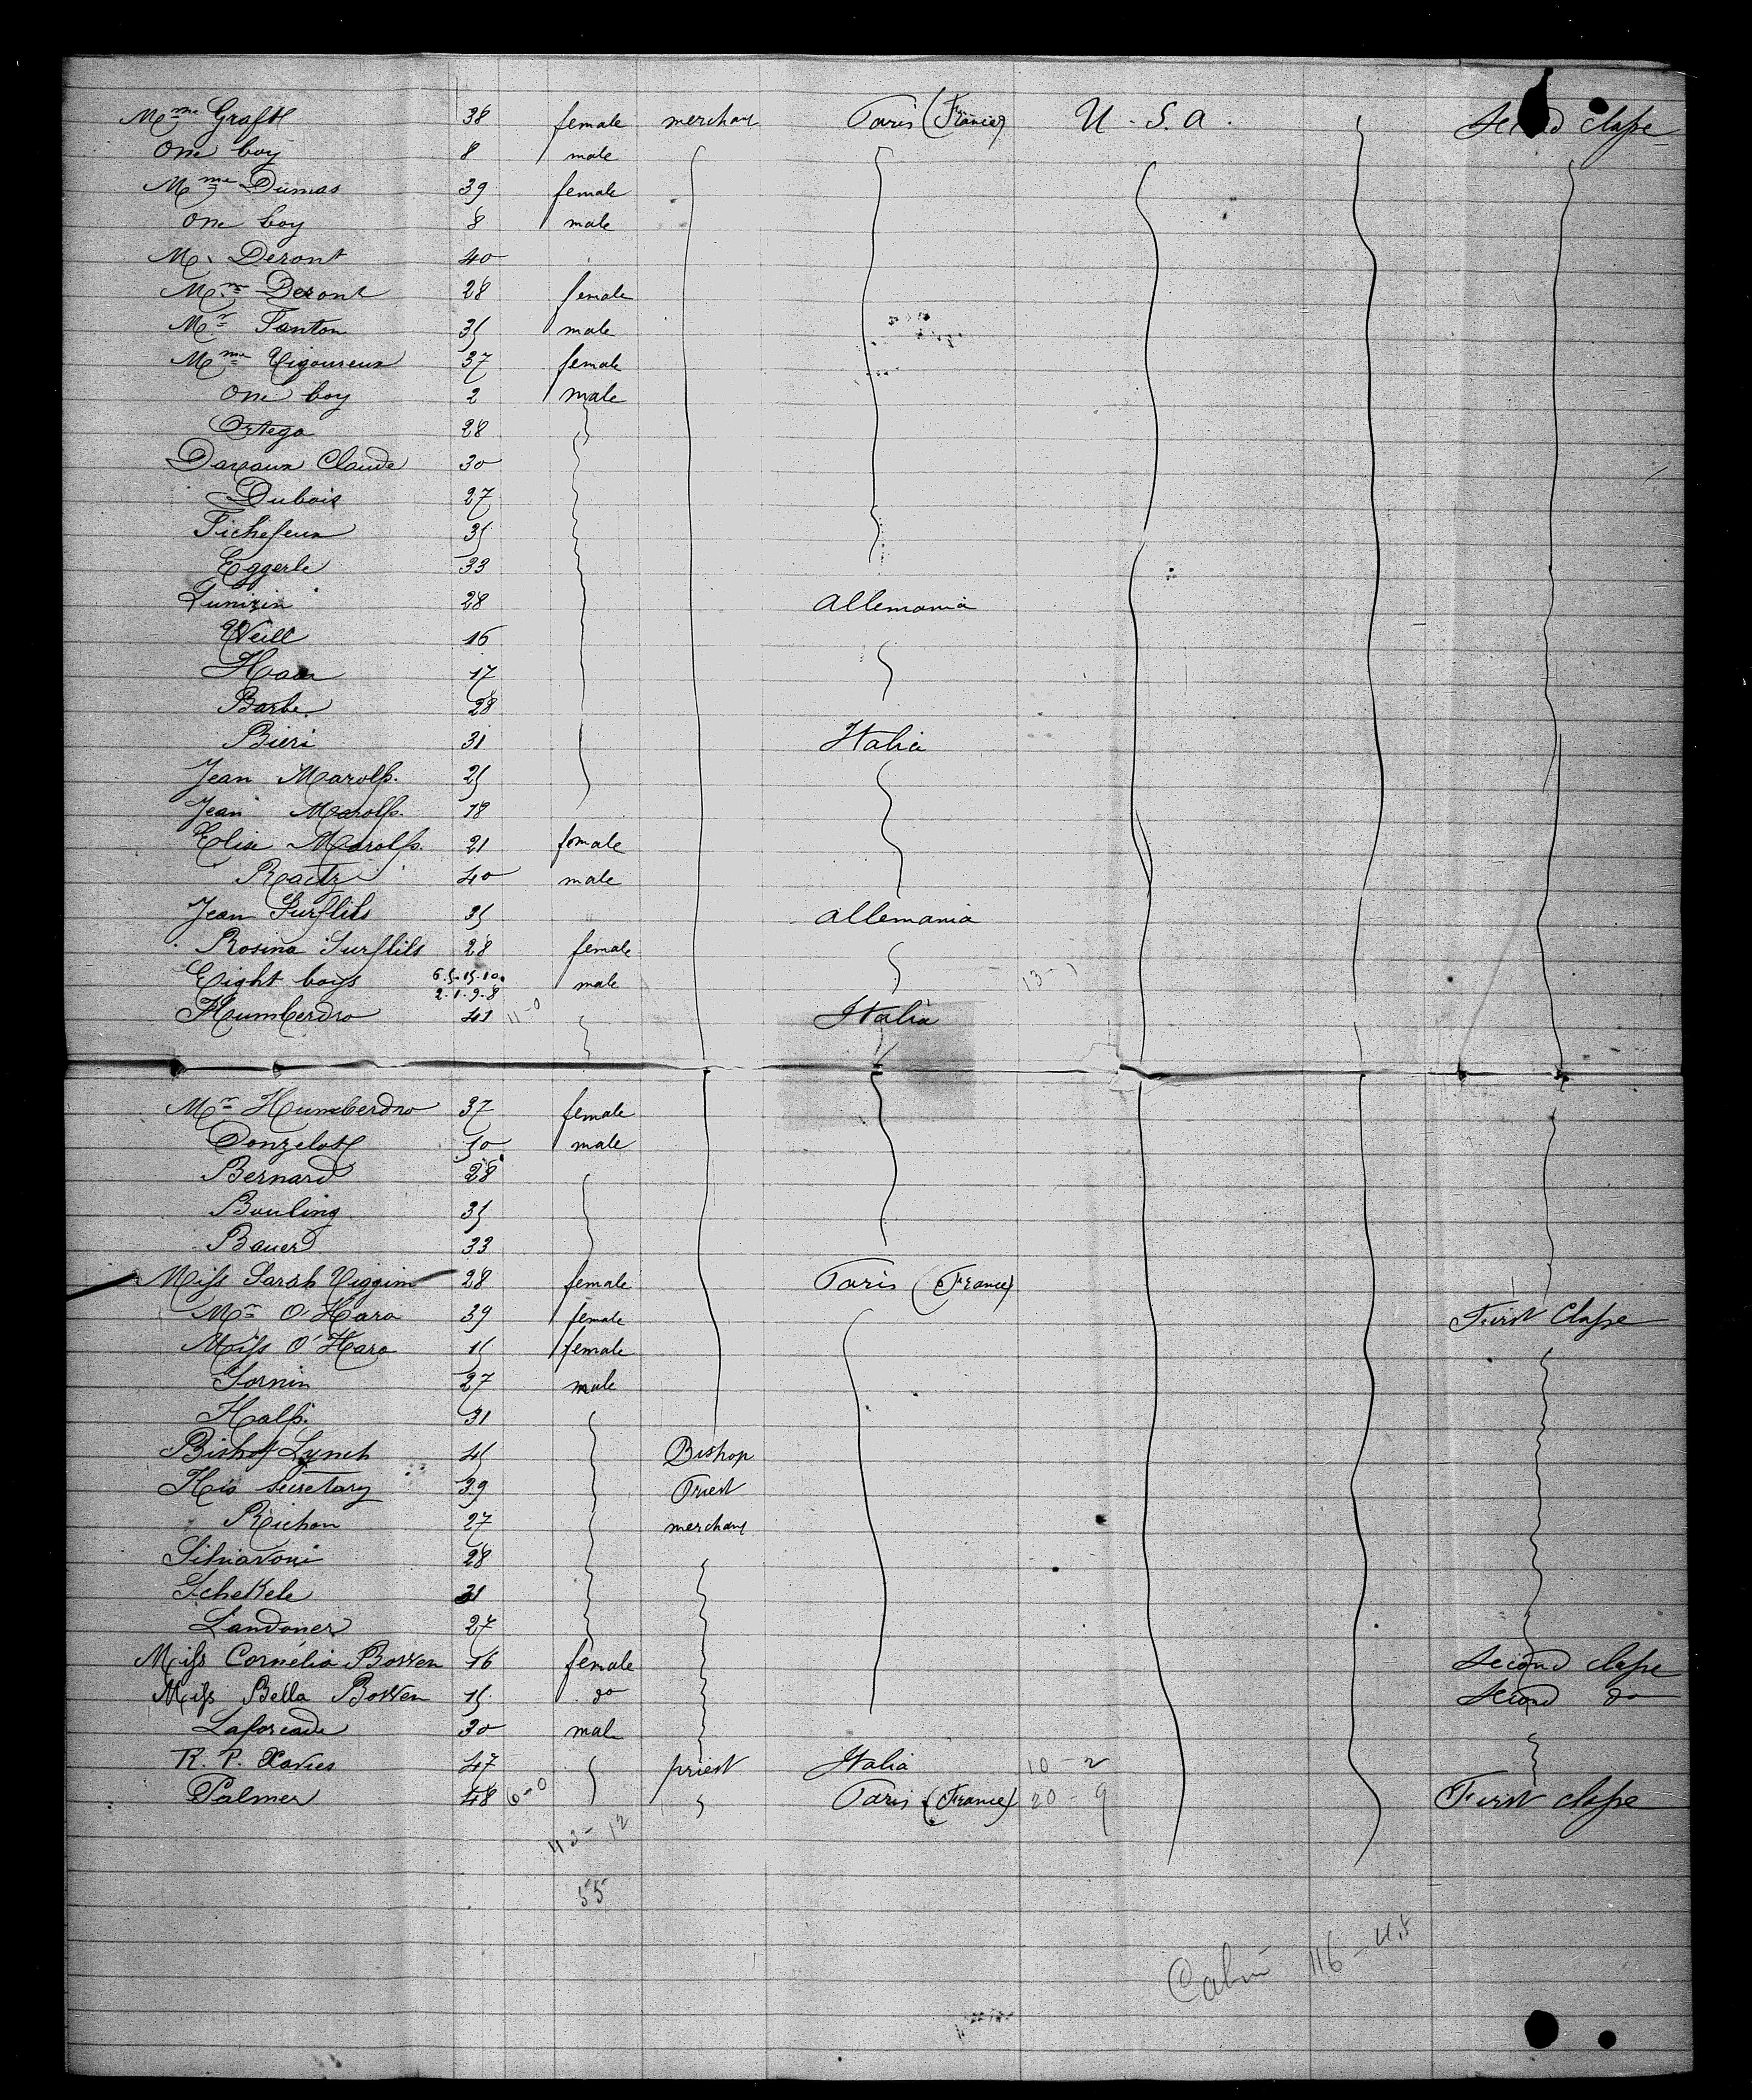 Mme Grafth 38 female merchant Paris (France) U.S.A. Second classe
One boy 8 male
Mme Dumas 39 female
One boy 8 male
M. Deront 40
Mme Deront 28 female
Mr Fanton 35 male
Mme Vigoureux 37 female
One boy 2 male
Ortega 28
Davaux Claude 30
Dubois 27
Fichefeux 35
Eggerle 33
28 Allemania
Weill 16
Haar 17
Barbe 28
Bieri 31 Italia
Jean Marolf. 25
Jean Marolf. 18
Elise Marolf. 21 female
Ractz 40 male
Jean Surflils 35 Allemania
Rosina Surflils 28 female
Eight boys 6.5.15.10. male 13-1
2.1.9.8
Humberdro 41 11-0 Italia
Mr Humberdro 37 female
Donzeloth 50 male
Bernard 28
Bouling 35
Bauer 33
Miss Sarah Viggim 28 female Paris (France)
Mr O'Hara 39 female First Classe
Miss O'Hara 15 female
Sornin 27 male
Half. 31
Bishop Lynch 45 Bishop
His secretary 39 Priest
Richon 27 merchant
28
Schekele 31
Landoner 27
Miss Cornélia Bowen 16 female Second classe
Miss Bella Bowen 15 do Second do
Laforcade 30 mal
R. P. Xavies 47 priest Italia 10-2
Palmer 48 6-0 Paris (France) 20-9 First classe
43-12
55
Cabin 116-48